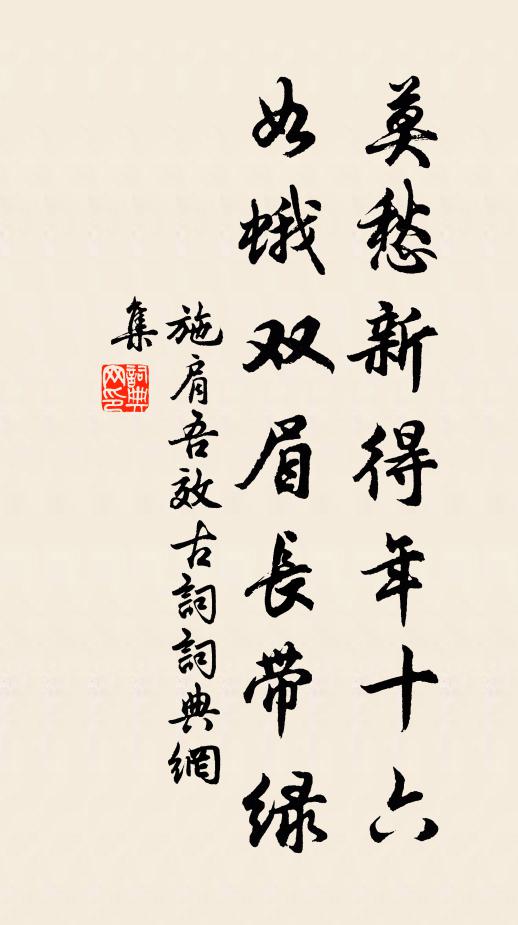 莫愁新得年十六
如蛾双眉長带绿
施肩吾效古詞詞典網
集
詞典
网印